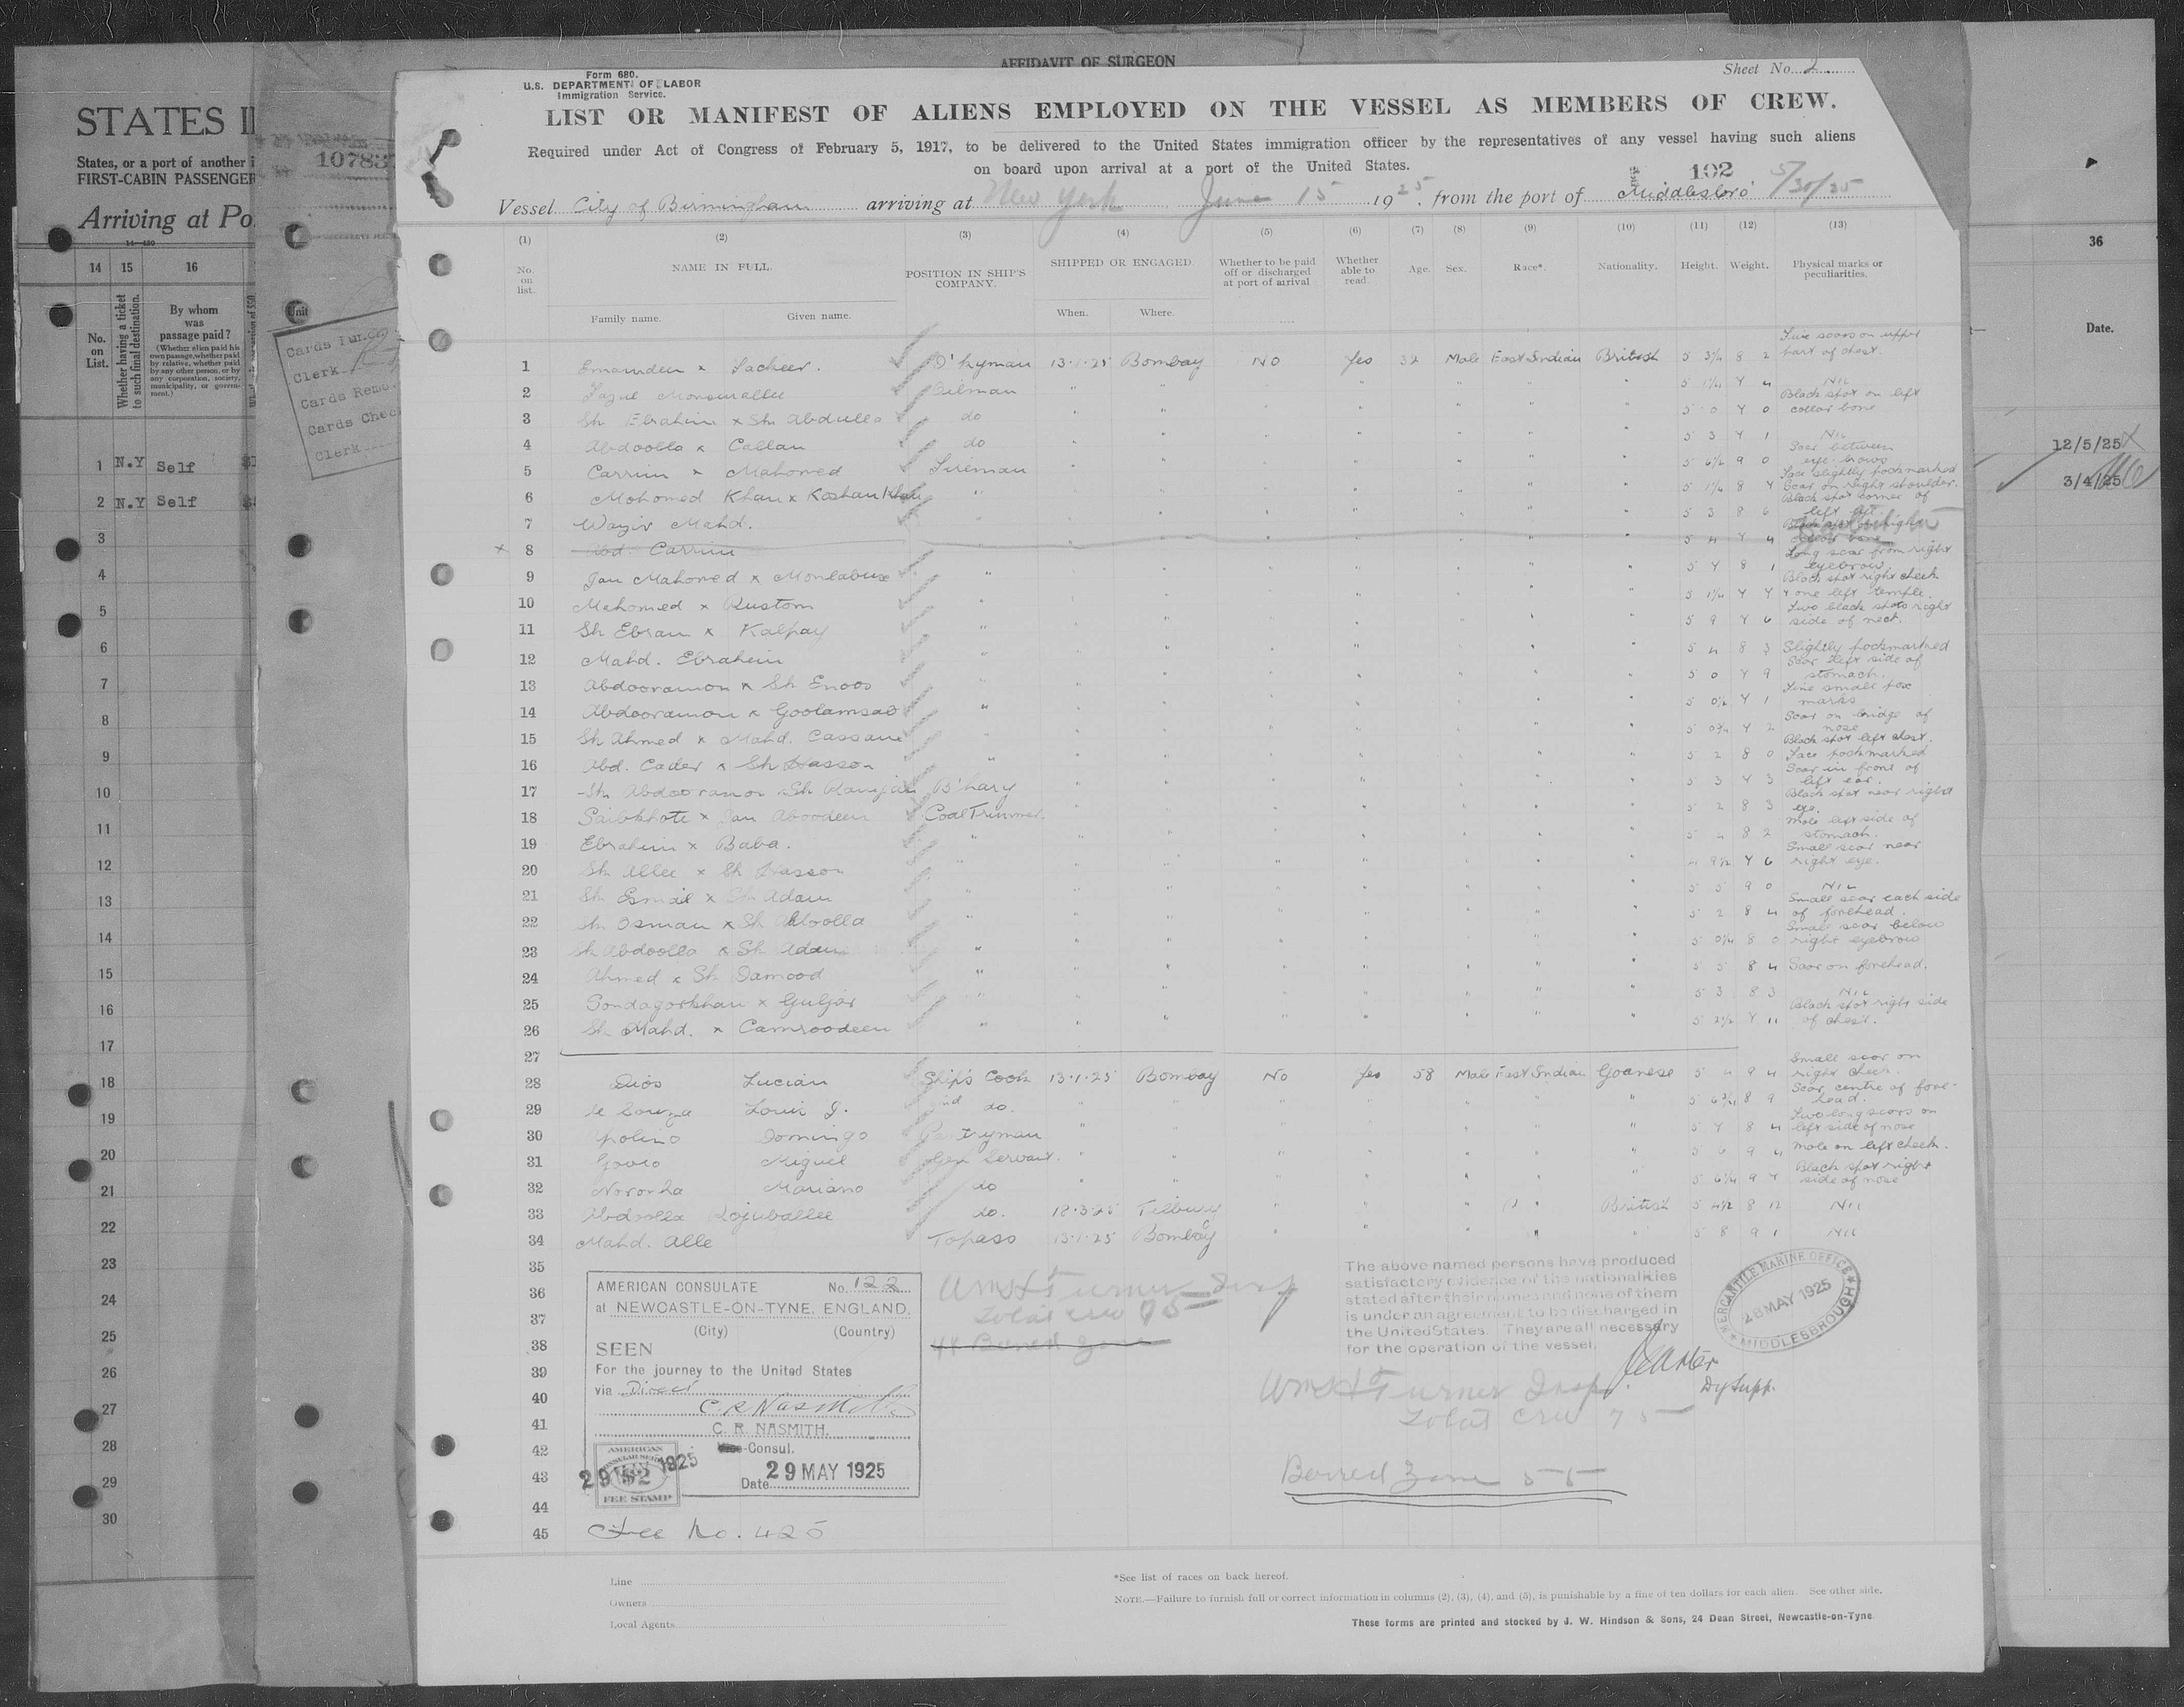 AFFIDAVIT OF SURGEON
Form 680.
U.S. DEPARTMENT OF LABOR
Immigration Service.
Sheet No. 2
LIST OR MANIFEST OF ALIENS EMPLOYED ON THE VESSEL AS MEMBERS OF CREW.
Required under Act of Congress of February 5, 1917, to be delivered to the United States immigration officer by the representatives of any vessel having such aliens
on board upon arrival at a port of the United States.
102
Vessel City of Birmingham arriving at New York June 15 1925, from the port of Middlesbro' 5/30/25
(1) (2) (3) (4) (5) (6) (7) (8) (9) (10) (11) (12) (13)
No. on list. NAME IN FULL. POSITION IN SHIP'S COMPANY. SHIPPED OR ENGAGED. Whether to be paid off or discharged at port of arrival Whether able to read. Age. Sex. Race*. Nationality. Height. Weight. Physical marks or peculiarities.
Family name. Given name. When. Where.
1 Sacheer. 13.1.25 Bombay No Yes 32 Male East Indian British 5 3¼ 8 2 part of chest.
2 Oilman 5 1¼ 7 4 Nil
3 Sh Ebrahim x Sh Abdulla do 5 0 7 0 Black spot on left collar bone
4 Abdoolla x Callan do 5 3 7 1 Nil
5 Carrim x Mahomed Fireman 5 6½ 9 0 Scar between eye-brows
6 Mohomed Khan x Roshan Khan " 5 1¼ 8 7 Face slightly pockmarked Scar on right shoulder.
7 Wazir Mahd. 5 3 8 6 Black spot corner of left
8 Abd. Carrim 5 4 7 4
9 Jan Mahomed x " 5 7 8 1 Long scar from right eyebrow
10 Mahomed x Rustom 5 1¼ 7 7 Black spot right cheek x one left temple.
11 Sh Ebram x Kalpay " 5 9 7 6 Two black spots right side of neck.
12 Mahd. Ebrahim " 5 4 8 3 Slightly pockmarked
13 Abdooramon x Sh Enoos " 5 0 7 9 Scar left side of stomach.
14 Abdooramon x Goolamsab " 5 0½ 7 1 small pox marks
15 Sh Ahmed x Mahd. Cassam 5 0¾ 7 2 Scar on bridge of nose
16 Abd. Cader x Sh Hasson " 5 2 8 0 Black spot left chest. Face pockmarked
17 Sh Abdooramon x Sh B'hary 5 3 7 3 Scar in front of left ear.
18 Coal Trimmer. 5 2 8 3 Black spot near right eye.
19 Ebrahim x Baba. " 5 4 8 2 Mole left side of stomach.
20 Sh Allee x Sh Hasson " 4 9½ 7 6 Small scar near right eye.
21 Sh Esmail x Sh Adam " 5 5 9 0 Nil
22 Sh Osman x Sh Abdoolla " 5 2 8 4 Small scar each side of forehead.
23 Sh Abdoolla x Sh Adam " 5 0¼ 8 0 Small scar below right eyebrow
24 Ahmed x Sh Damood " 5 5 8 4 Scar on forehead.
25 x Guljar " 5 3 8 3 Nil
26 Sh Mahd. x Camroodeen " 5 2½ 7 11 Black spot right side of chest.
27
28 Dios Lucian Ship's Cook 13.1.25 Bombay No Yes 58 Male East Indian Goanese 5 4 9 4 Small scar on right cheek.
29 de Souza Louis J. 2nd do. 5 6¾ 8 9 Scar, centre of fore-head.
30 Apolino Domingo Pantryman 5 7 8 4 Two long scars on left side of nose
31 Miguel Gen Servant. 5 6 9 4 Mole on left cheek.
32 Noronha Mariano do 5 6¼ 9 7 Black spot right side of nose
33 Abdoolla Rojuballee do. 18.3.25 Tilbury British 5 4½ 8 12 Nil
34 Mahd. Alle Topass 13.1.25 Bombay 5 8 9 1 Nil
35
36
37
38
39
40
41
42
43
44
45
AMERICAN CONSULATE No. 122
at NEWCASTLE-ON-TYNE, ENGLAND.
(City) (Country)
SEEN
For the journey to the United States
via Direct
C. R. Nasmith
C. R. NASMITH.
Vice-Consul.
Date 29 MAY 1925
AMERICAN
CONSULAR SERVICE
$2
29 MAY 1925
FEE STAMP
Fee No. 425
Wm H Turner Insp
Total crew 75
48 Barred Zone
The above named persons have produced
satisfactory evidence of the nationalities
stated after their names and none of them
is under an agreement to be discharged in
the United States. They are all necessary
for the operation of the vessel.
Dy Supt.
MERCANTILE MARINE OFFICE
28 MAY 1925
MIDDLESBROUGH
Wm H Turner Insp.
Total crew 75
Barred Zone 55
Line
Owners
Local Agents
*See list of races on back hereof.
NOTE.—Failure to furnish full or correct information in columns (2), (3), (4), and (5), is punishable by a fine of ten dollars for each alien. See other side.
These forms are printed and stocked by J. W. Hindson & Sons, 24 Dean Street, Newcastle-on-Tyne
STATES I
States, or a port of another i
FIRST-CABIN PASSENGER
Arriving at Po
14—430
14 15 16
No. on List.
Whether having a ticket to such final destination.
By whom was passage paid?
(Whether alien paid his own passage, whether paid by relative, whether paid by any other person, or by any corporation, society, municipality, or government.)
1 N.Y Self
2 N.Y Self
3
4
5
6
7
8
9
10
11
12
13
14
15
16
17
18
19
20
21
22
23
24
25
26
27
28
29
30
10783
Unit
Cards Pun.
Clerk
Cards Remo.
Cards Chec
Clerk
36
Date.
12/5/25
3/4/25